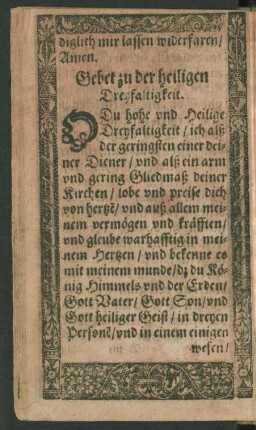 diglich mir lassen widerfaren/
Amen.
Gebet zu der heiligen
Dreyfaltigkeit.
O Du hohe vnd Heilige
Dreyfaltigkeit / ich alß
der geringsten einer dei-
ner Diener / vnd alß ein arm
vnd gering Gliedmaß deiner
Kirchen / lobe vnd preise dich
von hertzẽ / vnd auß allem mei-
nem vermögen vnd kräfften /
vnd gleube warhafftig in mei-
nem Hertzen / vnd bekenne es
mit meinem munde / dz du Kö-
nig Himmels vnd der Erden /
Gott Vater / Gott Son / vnd
Gott heiliger Geist / in dreyen
Personẽ / vnd in einem einigen
wesen /